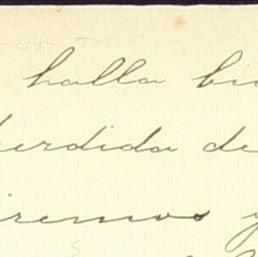 halla bi
perdida de
iremos y